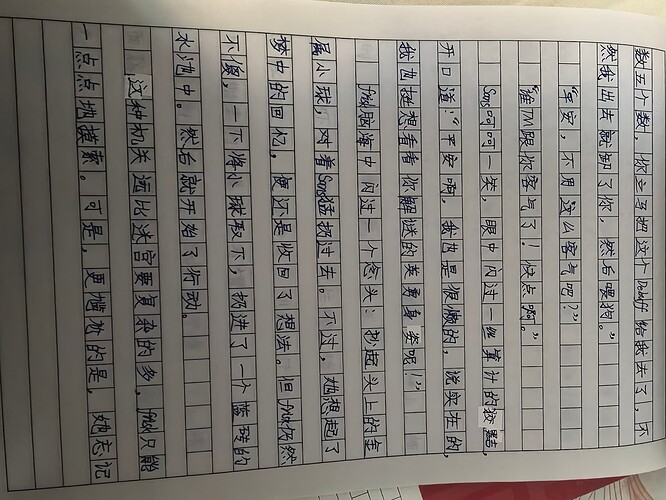 数五个数，你立马把这个Debuff给我去了，不
然我出去就卸了你，然后喂狗。”
“平安，不用这么客气吧？”
“谁TM跟你客气了！快点啊。”
Sans呵呵一笑，眼中闪过一丝算计的狡黠，
开口道：“平安啊，我也是很懒的，说实在的，
我也挺想看看你解谜的英勇身姿呢！”
脑海中闪过一个念头：抄起头上的金
属小球，对着Sans猛扔过去。不过，她想起了
梦中的回忆，便还是收回了想法。但仍然
不傻，一下将小球取下，扔进了一个的
水池中。然后就开始了行动。
这种机关远比迷宫要复杂的多，只能
一点点地摸索。可是，更尴尬的是，她忘记